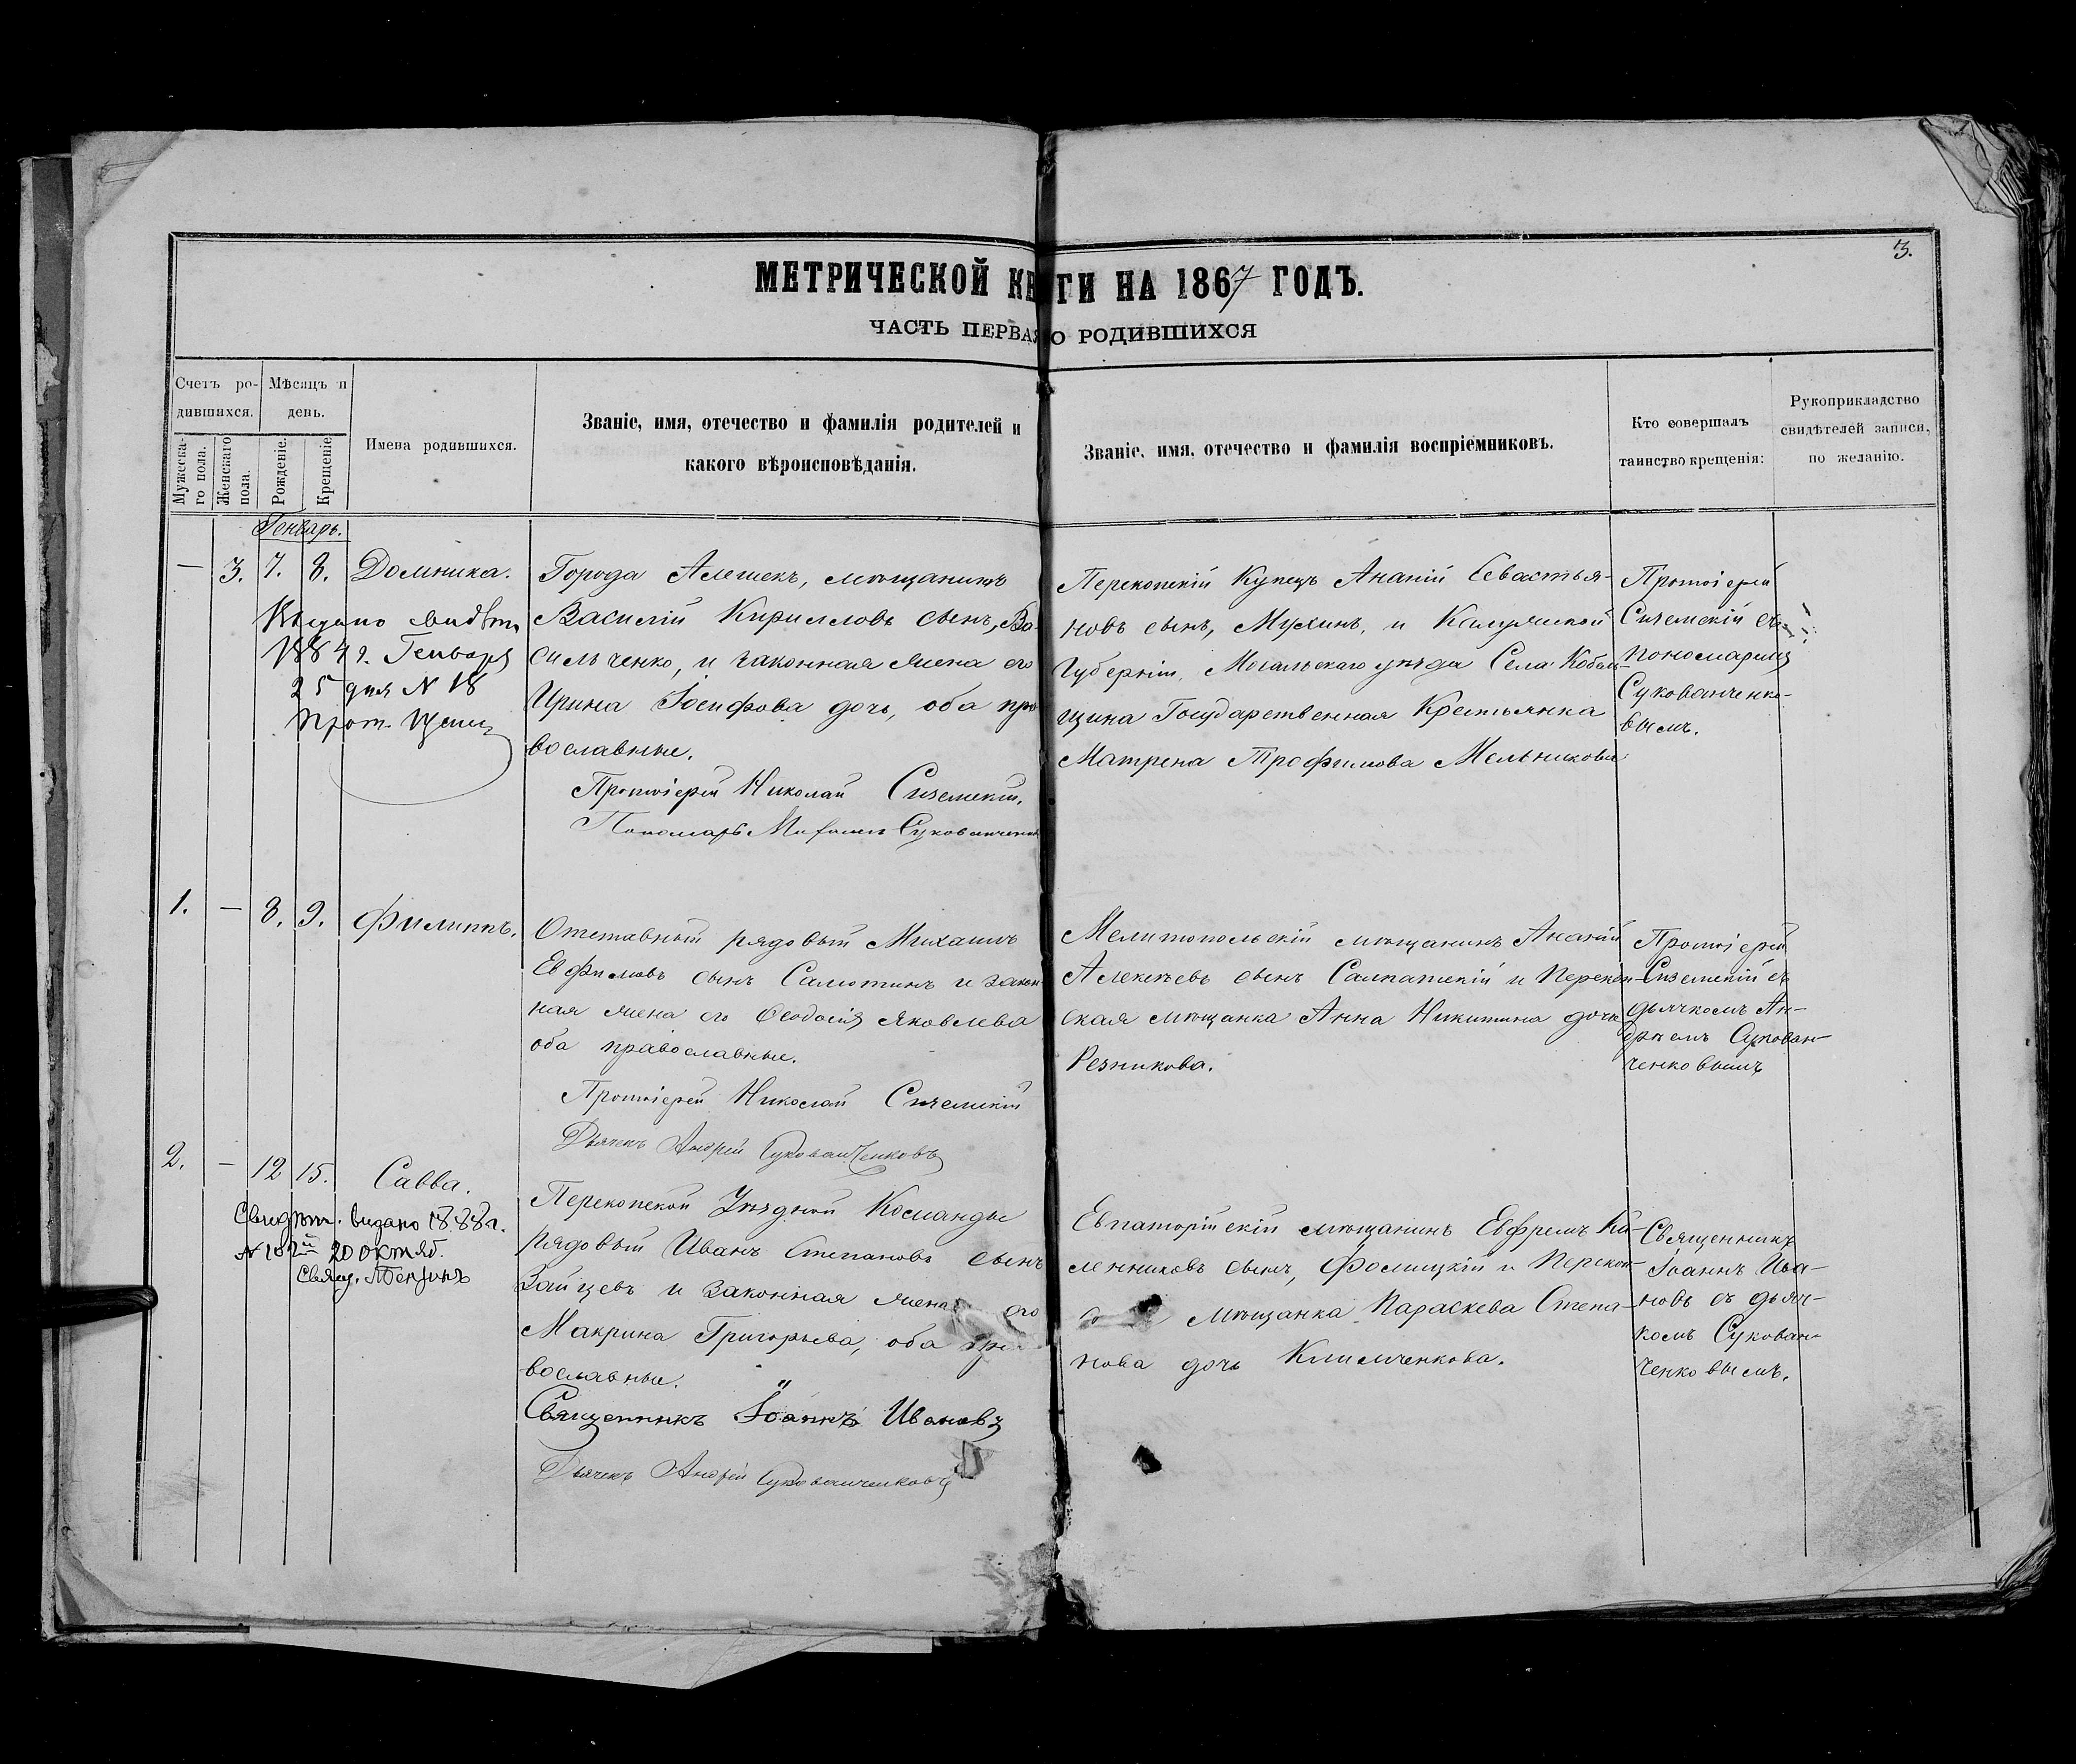 3.
МЕТРИЧЕСКОЙ КНИГИ НА 1867 ГОДЪ.
ЧАСТЬ ПЕРВАЯ О РОДИВШИХСЯ
Счетъ ро-
дившихся.
Мужеска-
го пола.
Женскаго
пола.
Мѣсяцъ и
день.
Рожденіе.
Крещеніе
Имена родившихся.
Званіе, имя, отечество и фамилія родителей и
какого вѣроисповѣданія.
Званіе, имя, отечество и фамилія воспріемниковъ.
Кто совершалъ
таинство крещенія:
Рукоприкладство
свидѣтелей записи,
по желанію.
Генварь.
— 3. 7. 8. Домника.
Выдано свидѣт
1884 г. Генваря
25 дня N 18
Прот.
Города Алешекъ, мѣщанинъ
Василій Кирилловъ сынъ, Ва-
сильченко, и законная жена его
Ирина Іосифова дочь, оба пра
вославные.
Протоіерей Николай Сиземскій.
Пономарь Сукованченко
Перекопскій Купецъ Ананій Севастья-
новъ сынъ, Мухинъ, и Калужской
Губерніи, Мосальскаго уѣзда Села
Государственная Крестьянка
Матрена Трофимова Мельникова
Протоіерей
Сиземскій съ
пономаремъ
Сукованченко-
вымъ.
1. — 8. 9. Филиппъ.
Отставный рядовый Михаилъ
Евфимовъ сынъ Самотинъ и закон
ная жена его Ѳеодосія Яковлева
оба православные.
Протоіерей Николай Сиземскій
Дьячекъ Андрей Сукованченковъ
Мелитопольскій мѣщанинъ Ананій
Алексѣевъ сынъ Салпатскій и Перекоп-
ская мѣщанка Анна Никитина дочь
Резникова.
Протоіерей
Сиземскій съ
дьячкомъ Ан-
дреемъ Сукован-
ченковымъ
2. — 12 15. Савва.
Свидѣт. видано 1888 г.
20 октяб.
Свящ.
Перекопской Уѣздной Команды
рядовый Иванъ Степановъ сынъ
Зайцевъ и законная жена его
Макрина Григорьева, оба пра
вославные.
Священникъ Іоаннъ Ивановъ
Дьячекъ Андрей Сукованченковъ
Евпаторійскій мѣщанинъ Ефремъ Ка-
ленниковъ сынъ, Фомицкій и Перекоп-
мѣщанка Параскева Степа-
нова дочь Климченкова.
Священникъ
Іоаннъ Ива-
новъ съ дьяч-
комъ Сукован-
ченковымъ.